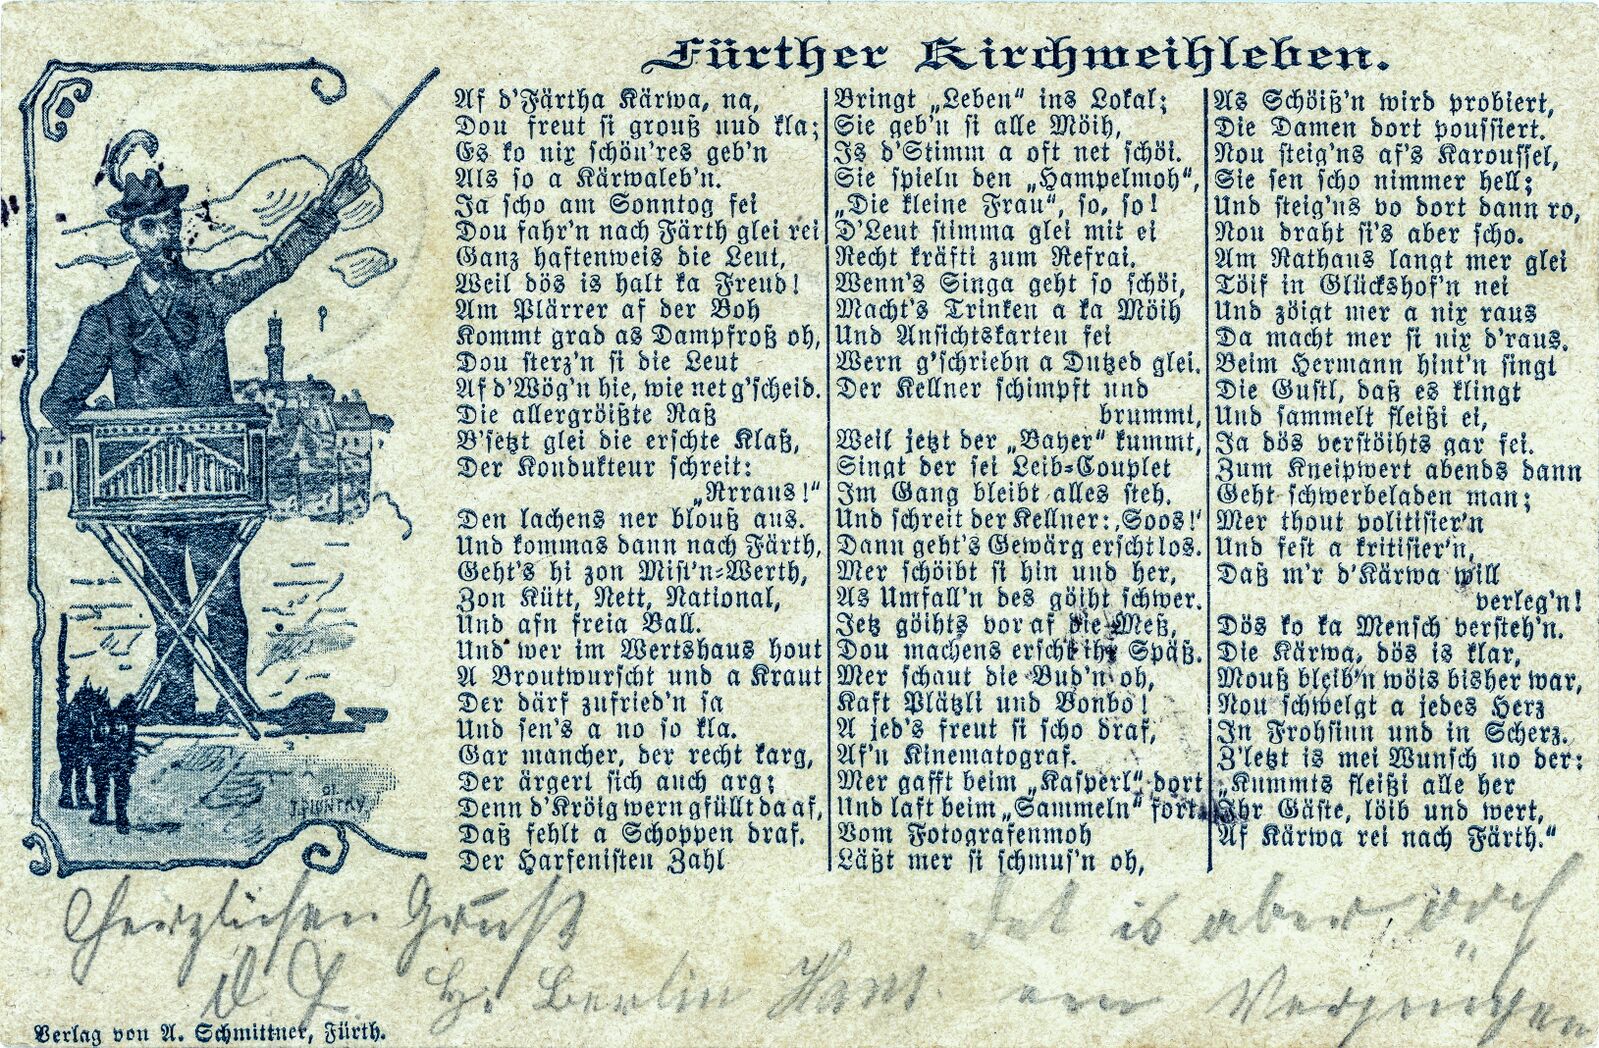 Fürther Kirchweihleben.
Af d'Färtha Kärwa, na,
Dou freut si grouß und kla;
Es ko nix schön'res geb'n
Als so a Kärwaleb'n.
Ja scho am Sonntog fei
Dou fahr'n nach Färth glei rei
Ganz haftenweis die Leut,
Weil dös is halt ka Freud!
Am Plärrer af der Boh
Kommt grad as Dampfroß oh,
Dou sterz'n si die Leut
Af d'Wög'n hie, wie net g'scheid.
Die allergröißte Raß
B'setzt glei die erschte Klaß,
Der Kondukteur schreit:
„Rrraus!"
Den lachens ner blouß aus.
Und kommas dann nach Färth,
Geht's hi zon Mist'n-Werth,
Zon Kütt, Nett, National,
Und afn freia Ball.
Und wer im Wertshaus hout
A Broutwurscht und a Kraut
Der därf zufried'n sa
Und sen's a no so kla.
Gar mancher, der recht karg,
Der ärgert sich auch arg;
Denn d'Kröig wern gfüllt da af,
Daß fehlt a Schoppen draf.
Der Harfenisten Zahl
Bringt „Leben" ins Lokal;
Sie geb'n si alle Möih,
Is d'Stimm a oft net schöi.
Sie spieln den „Hampelmoh",
„Die kleine Frau", so, so!
D'Leut stimma glei mit ei
Recht kräfti zum Refrai.
Wenn's Singa geht so schöi,
Macht's Trinken a ka Möih
Und Ansichtskarten fei
Wern g'schriebn a Dutzed glei.
Der Kellner schimpft und
brummt,
Weil jetzt der „Bayer" kummt,
Singt der sei Leib-Couplet
Im Gang bleibt alles steh.
Und schreit der Kellner: ‚Soos!'
Dann geht's Gewärg erscht los.
Mer schöibt si hin und her,
As Umfall'n des göiht schwer.
Jetz göihts vor af die Meß,
Dou machens erscht ihr Späß.
Mer schaut die Bud'n oh,
Kaft Plätzli und Bonbo!
A jed's freut si scho draf,
Af'n Kinematograf.
Mer gafft beim „Kasperl" dort
Und laft beim „Sammeln" fort
Vom Fotografenmoh
Läßt mer si schmus'n oh,
As Schöiß'n wird probiert,
Die Damen dort poussiert.
Nou steig'ns af's Karoussel,
Sie sen scho nimmer hell;
Und steig'ns vo dort dann ro,
Nou draht si's aber scho.
Am Rathaus langt mer glei
Töif in Glückshof'n nei
Und zöigt mer a nix raus
Da macht mer si nix d'raus.
Beim Hermann hint'n singt
Die Gustl, daß es klingt
Und sammelt fleißi ei,
Ja dös verstöihts gar fei.
Zum Kneipwert abends dann
Geht schwerbeladen man;
Mer thout politisier'n
Und fest a kritisier'n,
Daß m'r d'Kärwa will
verleg'n!
Dös ko ka Mensch versteh'n.
Die Kärwa, dös is klar,
Mouß bleib'n wöis bisher war,
Nou schwelgt a jedes Herz
In Frohsinn und in Scherz.
Z'letzt is mei Wunsch no der:
„Kummts fleißi alle her
Ihr Gäste, löib und wert,
Af Kärwa rei nach Färth."
Herzlichen Gruß
Berlin Hans.
Det is aber
een Vergnügen
Verlag von A. Schmittner, Fürth.